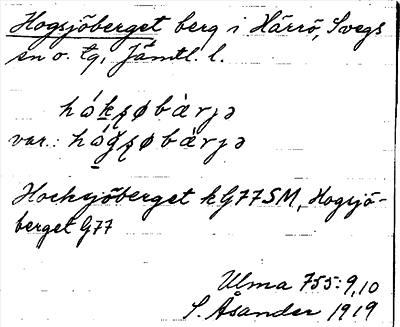 Hogsjöberget berg i Härrö, Svegs
sn o. tg, Jämtl. l.
hókʂøbàrjə
var.: hóg̊ʂøbàrjə
Hocksjöberget kG77SM, Hogsjö-
berget G77
Ulma 755:9,10
S. Åsander 1919